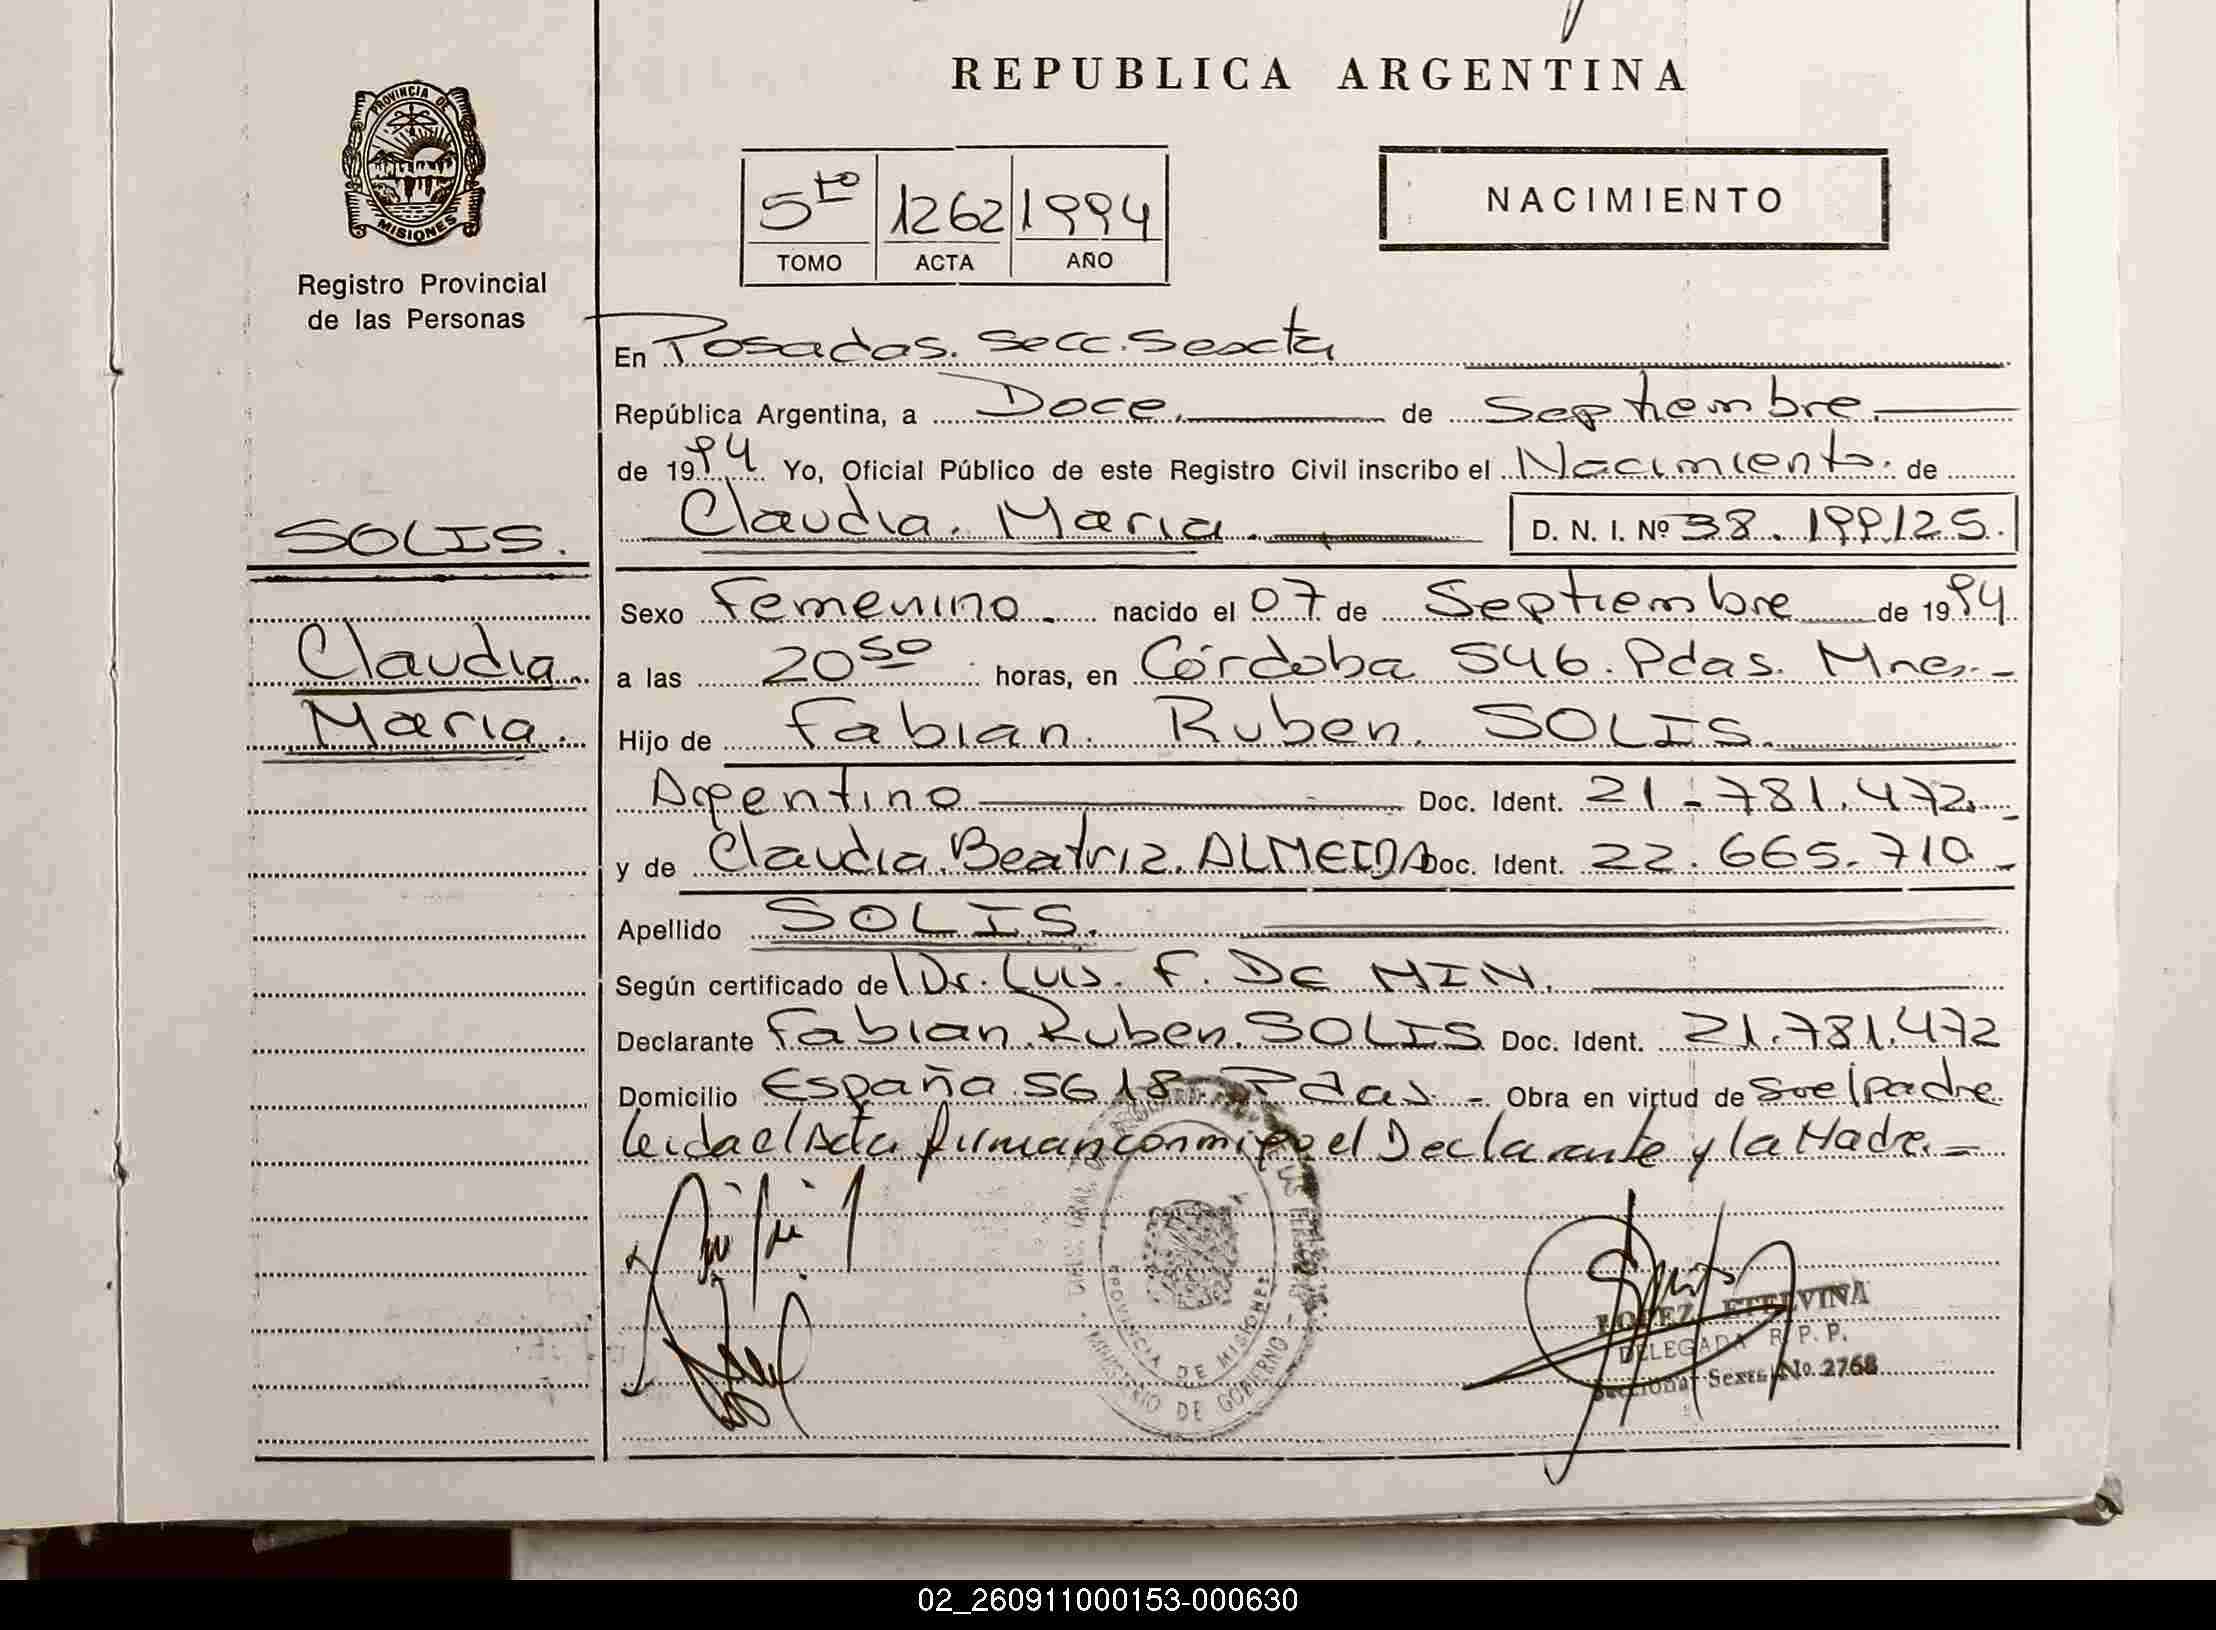 REPUBLICA ARGENTINA
PROVINCIA DE
MISIONES
Registro Provincial
de las Personas
5to 1262 1994
TOMO ACTA AÑO
NACIMIENTO
En Posadas. Secc. Sexta
República Argentina, a Doce. de Septiembre.
de 1994 Yo, Oficial Público de este Registro Civil inscribo el Nacimiento. de
Claudia. Maria. D. N. I. Nº 38.199.125.
SOLIS.
Claudia.
Maria.
Sexo Femenino. nacido el 07 de Septiembre de 1994
a las 20 50 horas, en Córdoba 546. Pdas. Mnes.-
Hijo de Fabian. Ruben. SOLIS.
Argentino Doc. Ident. 21-781.472.-
y de Claudia. Beatriz. ALMEIDA Doc. Ident. 22.665.710-
Apellido SOLIS.
Según certificado de Dr. Luis. F. DE MIN.
Declarante Fabian. Ruben. SOLIS Doc. Ident. 21.781.472
Domicilio España 5618 Pdas.- Obra en virtud de Ser el padre
leida el Acta firman conmigo el Declarante y la Madre.-
PROVINCIA DE MISIONES
MINISTERIO DE GOBIERNO
LOPEZ, ETELVINA
DELEGADA R. P. P.
Seccional Sexta Nº 2768
02_260911000153-000630